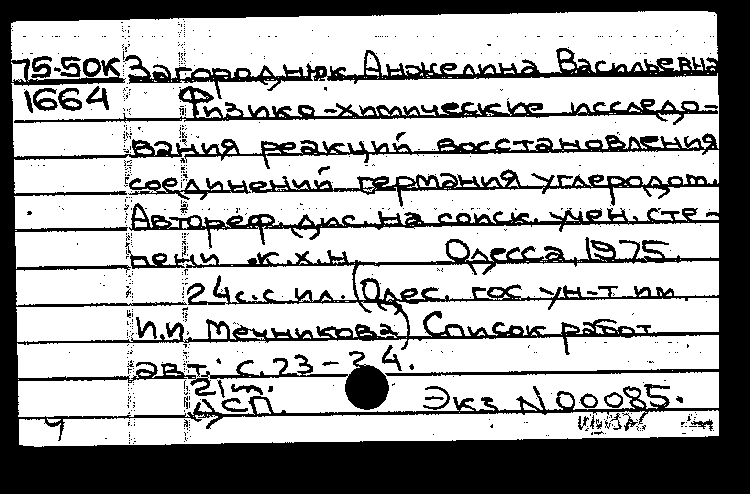 75-50К Загороднюк, Анжелина Васильевна
1664 Физико-химические исследо-
вания реакций восстановления
соединений германия углеродом.
Автореф. дис. на соиск. учен. сте-
пени к.х.н. Одесса, 1975.
24с. с ил. (Одес. гос. ун-т им.
И.И. Мечникова) Список работ
авт.: с. 23-24.
21т.
ДСП. Экз N 00085.
Ч